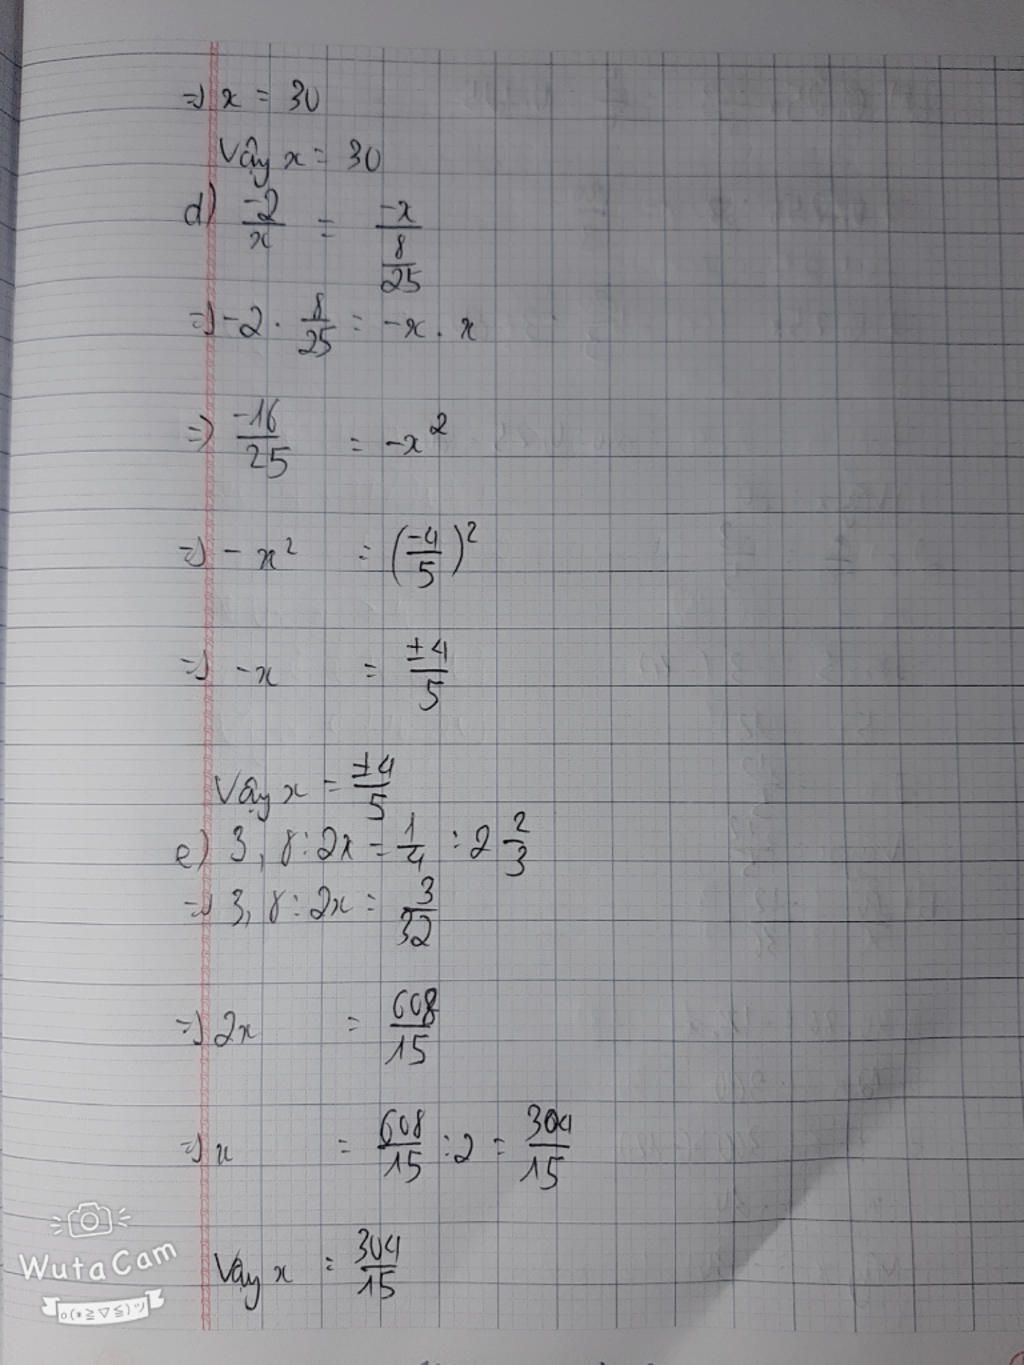 => x = 30
Vậy x = 30
d) -2/x = -x/(8/25)
=> -2 . 8/25 = -x . x
=> -16/25 = -x²
=> - x² = (-4/5)²
=> -x = ±4/5
Vậy x = ±4/5
e) 3,8 : 2x = 1/4 : 2 2/3
=> 3,8 : 2x = 3/32
=> 2x = 608/15
=> x = 608/15 : 2 = 304/15
Vậy x = 304/15
WutaCam
o(*≧▽≦)ツ